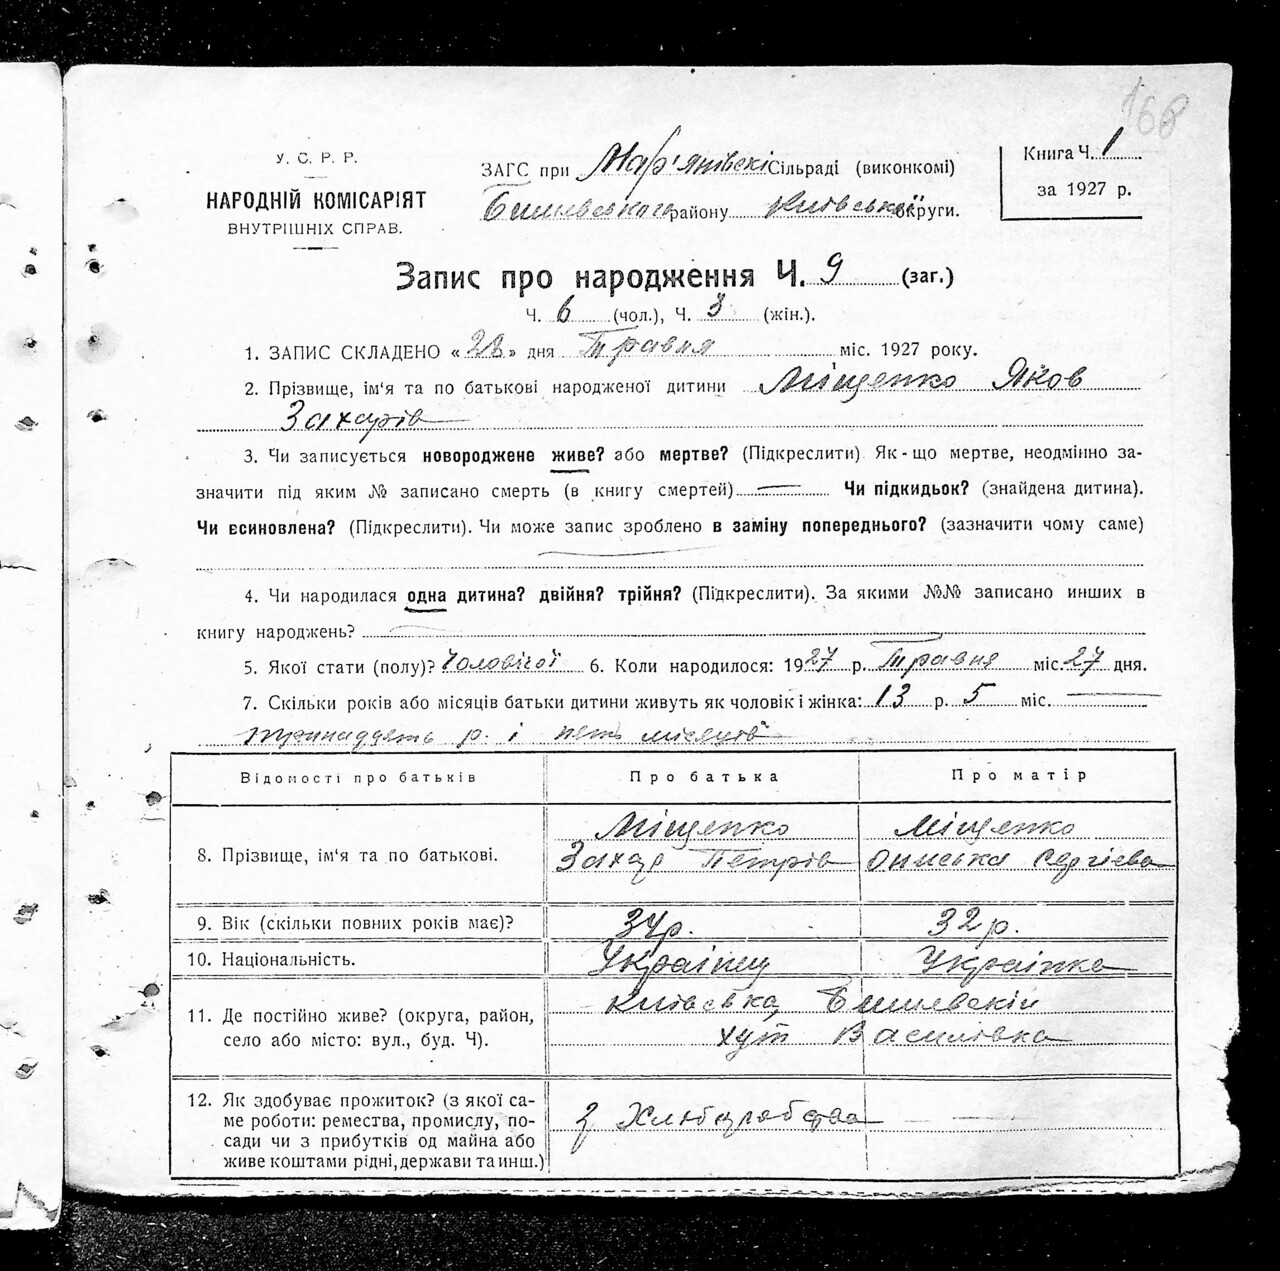 168
У. С. Р. Р.
НАРОДНІЙ КОМІСАРІЯТ
ВНУТРІШНІХ СПРАВ.
ЗАГС при Мар'янівскі Сільраді (виконкомі)
Бишевського району Київської округи.
Книга Ч. 1
за 1927 р.
Запис про народження Ч. 9 (заг.)
Ч. 6 (чол.), Ч. 3 (жін.).
1. ЗАПИС СКЛАДЕНО «28» дня Травня міс. 1927 року.
2. Прізвище, ім'я та по батькові народженої дитини Міщенко Яков
Захарів
3. Чи записується новороджене живе? або мертве? (Підкреслити). Як-що мертве, неодмінно за-
значити під яким № записано смерть (в книгу смертей) — Чи підкидьок? (знайдена дитина).
Чи єсиновлена? (Підкреслити). Чи може запис зроблено в заміну попереднього? (зазначити чому саме)
4. Чи народилася одна дитина? двійня? трійня? (Підкреслити). За якими №№ записано инших в
книгу народжень?
5. Якої стати (полу)? Чоловічої 6. Коли народилося: 1927 р. Травня міс. 27 дня.
7. Скільки років або місяців батьки дитини живуть як чоловік і жінка: 13 р. 5 міс. —
тринадцять р. і пять місяців
Відомості про батьків Про батька Про матір
8. Прізвище, ім'я та по батькові.
Міщенко Міщенко
Захар Петрів Ониська Сергієва
9. Вік (скільки повних років має)? 34 р. 32 р.
10. Національність. Українец Українка
11. Де постійно живе? (округа, район,
село або місто: вул., буд. Ч).
Київська Бишевский
хут Василівка
12. Як здобуває прожиток? (з якої са-
ме роботи: ремества, промислу, по-
сади чи з прибутків од майна або
живе коштами рідні, держави та инш.)
з Хлюборобства —